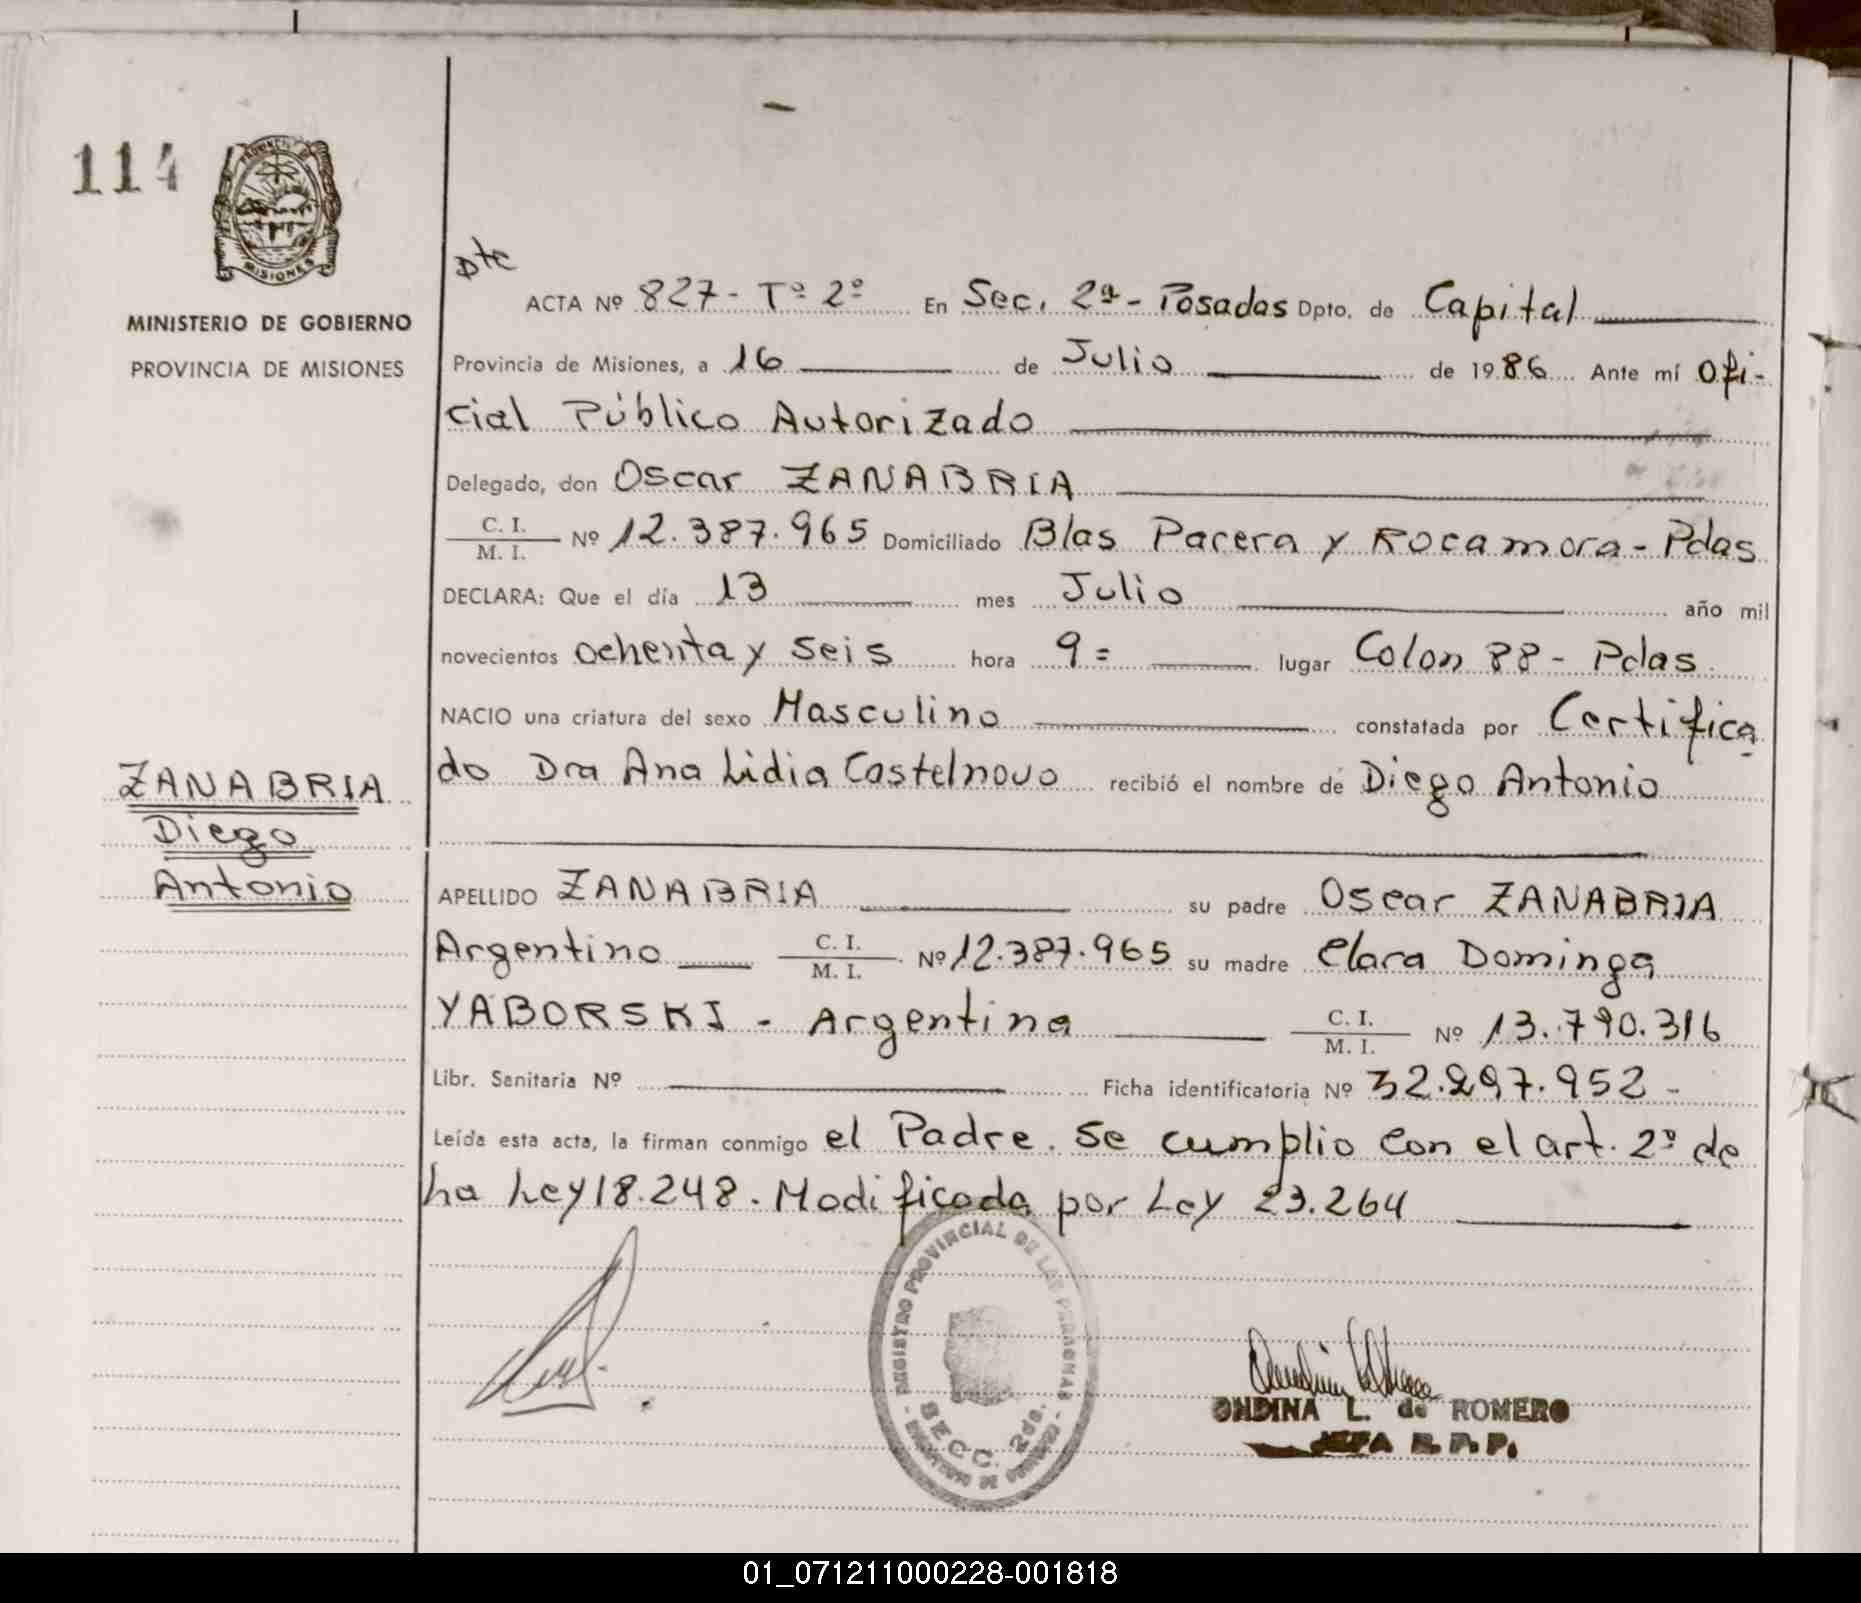 114
PROVINCIA DE
MISIONES
MINISTERIO DE GOBIERNO
PROVINCIA DE MISIONES
Dte
ACTA Nº 827- Tº 2º En Sec. 2ª - Posadas Dpto. de Capital
Provincia de Misiones, a 16 de Julio de 1986 Ante mí Ofi-
cial Público Autorizado
Delegado, don Oscar ZANABRIA
C. I.
M. I. Nº 12.387.965 Domiciliado Blas Parera y Rocamora - Pdas
DECLARA: Que el día 13 mes Julio año mil
novecientos ochenta y seis hora 9= lugar Colon 88 - Pdas.
NACIO una criatura del sexo Masculino constatada por Certifica
do Dra Ana Lidia Castelnovo recibió el nombre de Diego Antonio
ZANABRIA
Diego
Antonio
APELLIDO ZANABRIA su padre Oscar ZANABRIA
Argentino C. I.
M. I. Nº 12.387.965 su madre Clara Dominga
YABORSKI - Argentina C. I.
M. I. Nº 13.790.316
Libr. Sanitaria Nº Ficha identificatoria Nº 32.297.952 -
Leída esta acta, la firman conmigo el Padre. Se cumplio con el art. 2º de
La Ley 18.248. Modificada por Ley 23.264
REGISTRO PROVINCIAL DE LAS PERSONAS
SECC. 2da.
ONDINA L. de ROMERO
JEFA R. P. P.
01_071211000228-001818